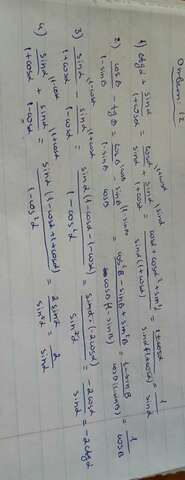 Ответ 12
1) ctgα + sinα/(1+cosα) = cosα/sinα + sinα/(1+cosα) = (cosα + cos²α + sin²α)/(sinα(1+cosα)) = (1+cosα)/(sinα(1+cosα)) = 1/sinα
2) cosβ/(1-sinβ) - tgβ = cosβ/(1-sinβ) - sinβ/cosβ = (cos²β - sinβ + sin²β)/(cosβ(1-sinβ)) = (1-sinβ)/(cosβ(1-sinβ)) = 1/cosβ
3) sinα/(1+cosα) - sinα/(1-cosα) = sinα(1-cosα-1-cosα)/(1-cos²α) = sinα·(-2cosα)/sin²α = -2cosα/sinα = -2ctgα
4) sinα/(1+cosα) + sinα/(1-cosα) = sinα(1-cosα+1+cosα)/(1-cos²α) = 2sinα/sin²α = 2/sinα